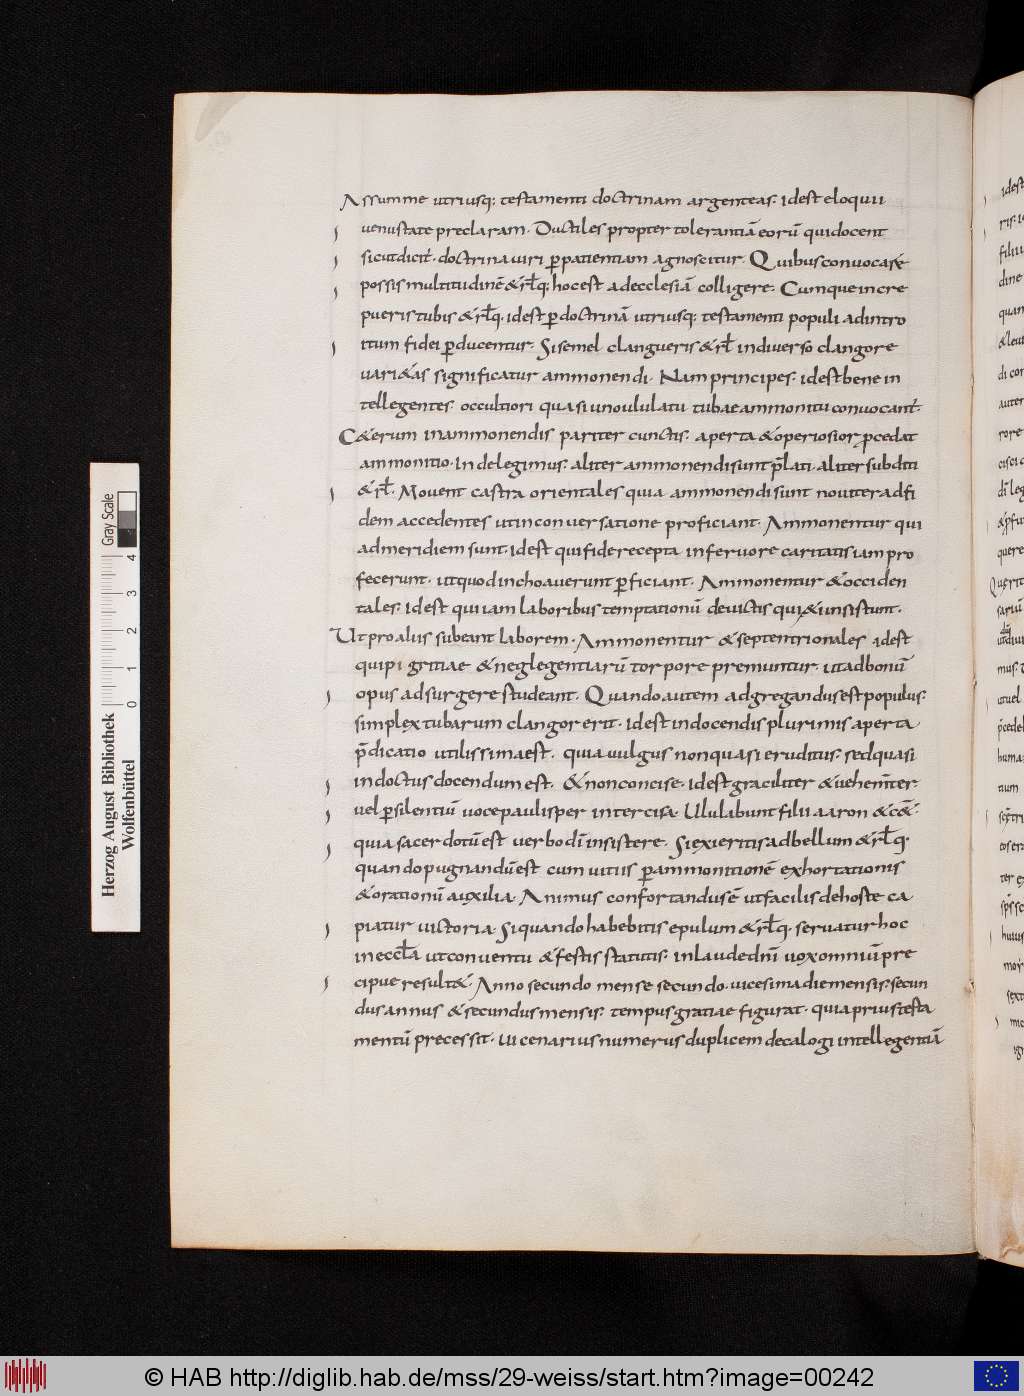 Assumme utriusq; testamenti doctrinam argenteas. idest eloquii
uenustate preclaram. Ductiles propter tolerantiā eorū qui docent
sicut dicit̄. doctrina uiri ꝑ patientiam agnoscitur. Quibus conuocare
possis multitudinē & rł̄q; hoc est ad ecclesiā colligere. Cumque incre
pueris tubis & rł̄q. idest ꝑ doctrinā utriusq; testamenti populi ad intro
itum fidei ꝑducentur. Si semel clangueris & rł̄ in diuerso clangore
uari&as significatur ammonendi. Nam principes. idest bene in
tellegentes. occultiori quasi uno ululatu tubae ammonitu conuocant̄.
C&erum in ammonendis pariter cunctis. aperta & operiosior ꝓcedat
ammonitio. in de legimus. aliter ammonendi sunt p̄lati. aliter subditi
& rł̄. Mouent castra orientales quia ammonendi sunt nouiter ad fi
dem accedentes ut in conuersatione proficiant. Ammonentur qui
ad meridiem sunt. idest qui fide recepta in feruore caritatis iam pro
fecerunt. ut quod inchoauerunt ꝑficiant. Ammonentur & occiden
tales. idest qui iam laboribus temptationū deuictis qui&i insistunt.
Ut pro aliis subeant laborem. Ammonentur & septentrionales idest
qui pigritiae & neglegentiarū torpore premuntur. ut ad bonū
opus adsurgere studeant. Quando autem adgregandus est populus.
simplex tubarum clangor erit. idest in docendis plurimis aperta
p̄dicatio utilissima est. quia uulgus non quasi eruditus. sed quasi
indoctus docendum est. & non concise. idest graciliter & uehem̄ter
uel ꝑ silentiū uoce paulisper intercisa. Ululabunt filii aaron & c&̄.
quia sacerdotū est uerbo dī insistere. Si exieritis ad bellum & rł̄q.
quando pugnandū est cum uitiis ꝑ ammonitionē exhortationis
& orationū auxilia. Animus confortandus ē ut facilis de hoste ca
piatur uictoria. Si quando habebitis epulum & rł̄q. seruatur hoc
in eccła̅ ut conuentu & festis statutis. in laude dn̄i uox omniū pre
cipue result&. Anno secundo mense secundo. uicesima die mensis. secun
dus annus & secundus mensis. tempus gratiae figurat. quia prius testa
mentū precessit. Uicenarius numerus duplicem decalogi intellegentiā
Gray Scale
0 1 2 3 4
Herzog August Bibliothek
Wolfenbüttel
© HAB http://diglib.hab.de/mss/29-weiss/start.htm?image=00242